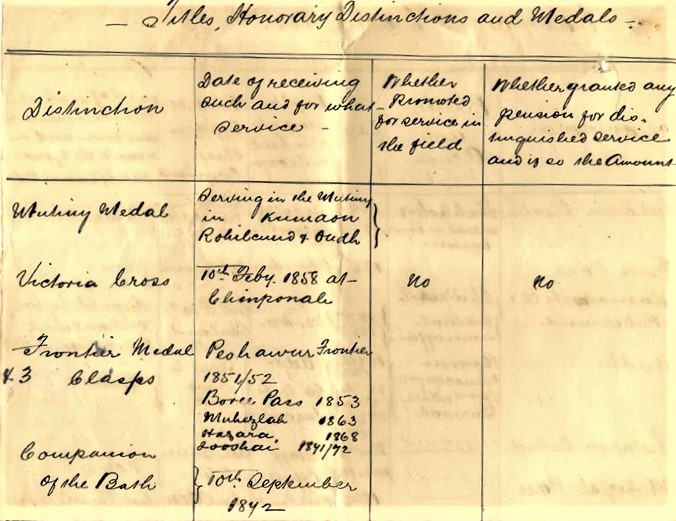 Titles, Honorary Distinctions and Medals
Distinction
Date of receiving
such and for what
service
Whether
promoted
for service in
the field
Whether granted any
pension for dis-
tinguished service
and if so the Amount
Mutiny Medal
Serving in the Mutiny
in Kumaon
Rohilcund & Oudh
Victoria Cross
10th Feby. 1858 at
No
No
Frontier Medal
& 3 Clasps
Peshawur Frontier
1851/52
Boree Pass 1853
1863
Hazara, 1868
Looshai 1871/72
Companion
of the Bath
10th September
1872